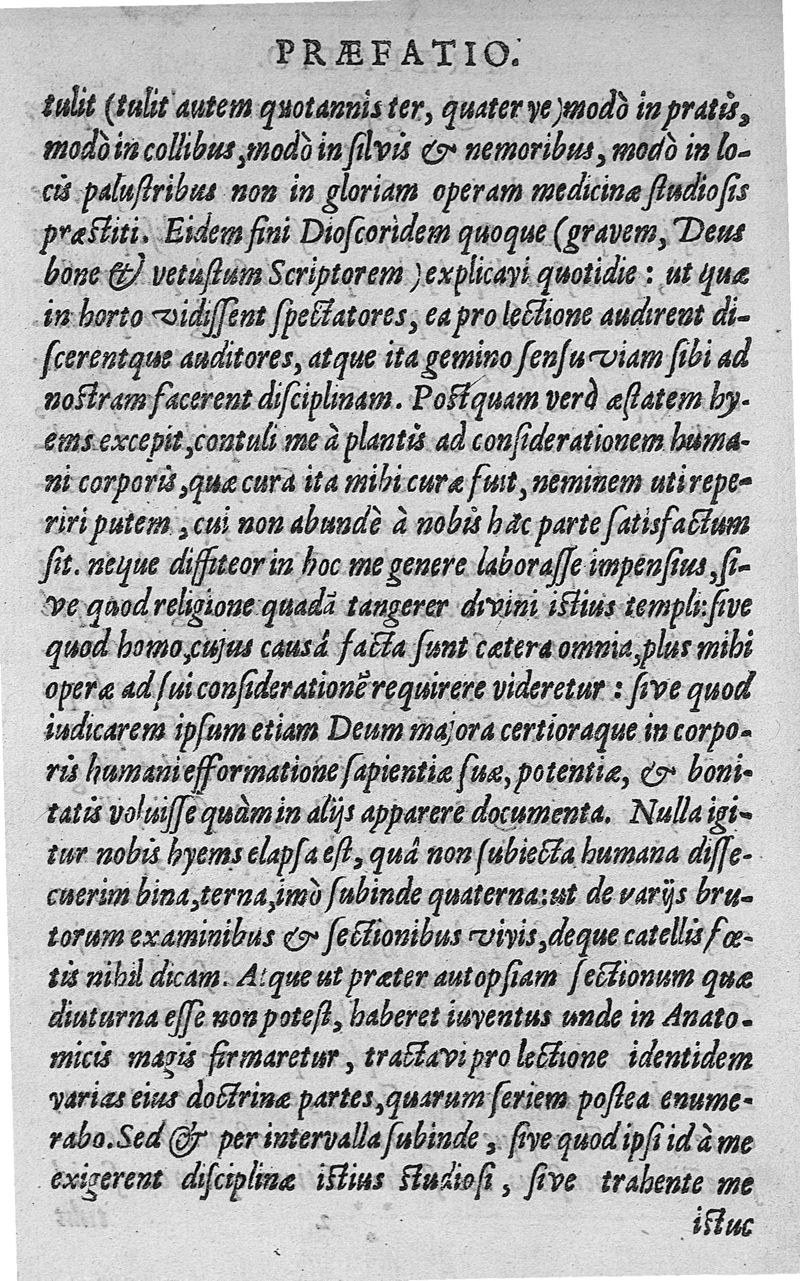 PRÆFATIO.
tulit (tulit autem quotannis ter, quater ve) modò in pratis,
modò in collibus, modò in ſilvis & nemoribus, modò in lo-
cis paluſtribus non in gloriam operam medicinæ ſtudioſis
præſtiti. Eidem fini Dioſcoridem quoque (gravem, Deus
bone & vetuſtum Scriptorem) explicavi quotidie: ut quæ
in horto vidiſſent ſpectatores, ea pro lectione audirent di-
ſcerentque auditores, atque ita gemino ſenſu viam ſibi ad
noſtram facerent diſciplinam. Poſtquam verò æſtatem hy-
ems excepit, contuli me à plantis ad conſiderationem huma-
ni corporis, quæ cura ita mihi curæ fuit, neminem uti repe-
riri putem, cui non abundè à nobis hac parte ſatisfactum
ſit. neque diffiteor in hoc me genere laboraſſe impenſius, ſi-
ve quod religione quadã tangerer divini iſtius templi: ſive
quod homo, cujus causâ facta ſunt cætera omnia, plus mihi
operæ ad ſui conſiderationẽ requirere videretur: ſive quod
iudicarem ipſum etiam Deum majora certioraque in corpo-
ris humani efformatione ſapientiæ ſuæ, potentiæ, & boni-
tatis voluiſſe quàm in alijs apparere documenta. Nulla igi-
tur nobis hyems elapſa eſt, quâ non ſubiecta humana diſſe-
cuerim bina, terna, imò ſubinde quaterna: ut de varijs bru-
torum examinibus & ſectionibus vivis, deque catellis fœ-
tis nihil dicam. Atque ut præter autopſiam ſectionum quæ
diuturna eſſe non poteſt, haberet iuventus unde in Anato-
micis magis firmaretur, tractavi pro lectione identidem
varias eius doctrinæ partes, quarum ſeriem poſtea enume-
rabo. Sed & per intervalla ſubinde, ſive quod ipſi id à me
exigerent diſciplinæ iſtius ſtudioſi, ſive trahente me
iſtuc